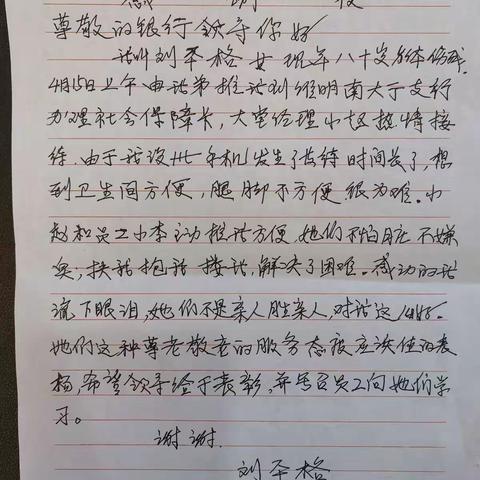 感 谢 信
尊敬的银行领导你好
我叫刘不格女现年八十岁身体伤残.
4月15日上午由我弟推我到维明南大于支行
办理社会保障卡，大堂经理小赵热情接
待.由于我没带手机发生了长待时间长了，想
到卫生间方便，腿脚不方便很为难.小
赵和员工小李主动推我方便，她们不怕脏不嫌
臭，扶我抱我搂我，解决了困难.感动的我
流下眼泪，她们不是亲人胜亲人，对我这么好.
她们这种尊老敬老的服务态度应该值的表
扬，希望领导给于表彰，并号召员工向她们学
习。
谢谢.
刘不格